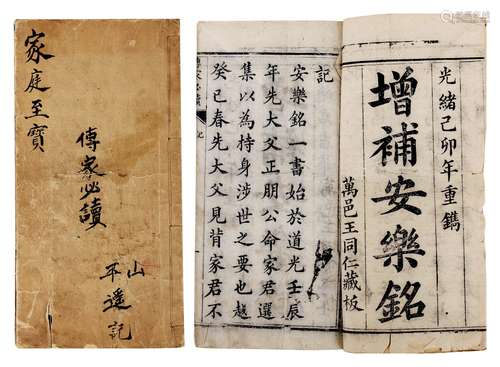 家庭至寶
傳家必讀
山
記
光緒己卯年重鐫
增補安樂銘
萬邑王同仁藏板
記
安樂銘一書始於道光壬辰
年先大父正朋公命家君選
集以為持身涉世之要也越
癸巳春先大父見背家君不